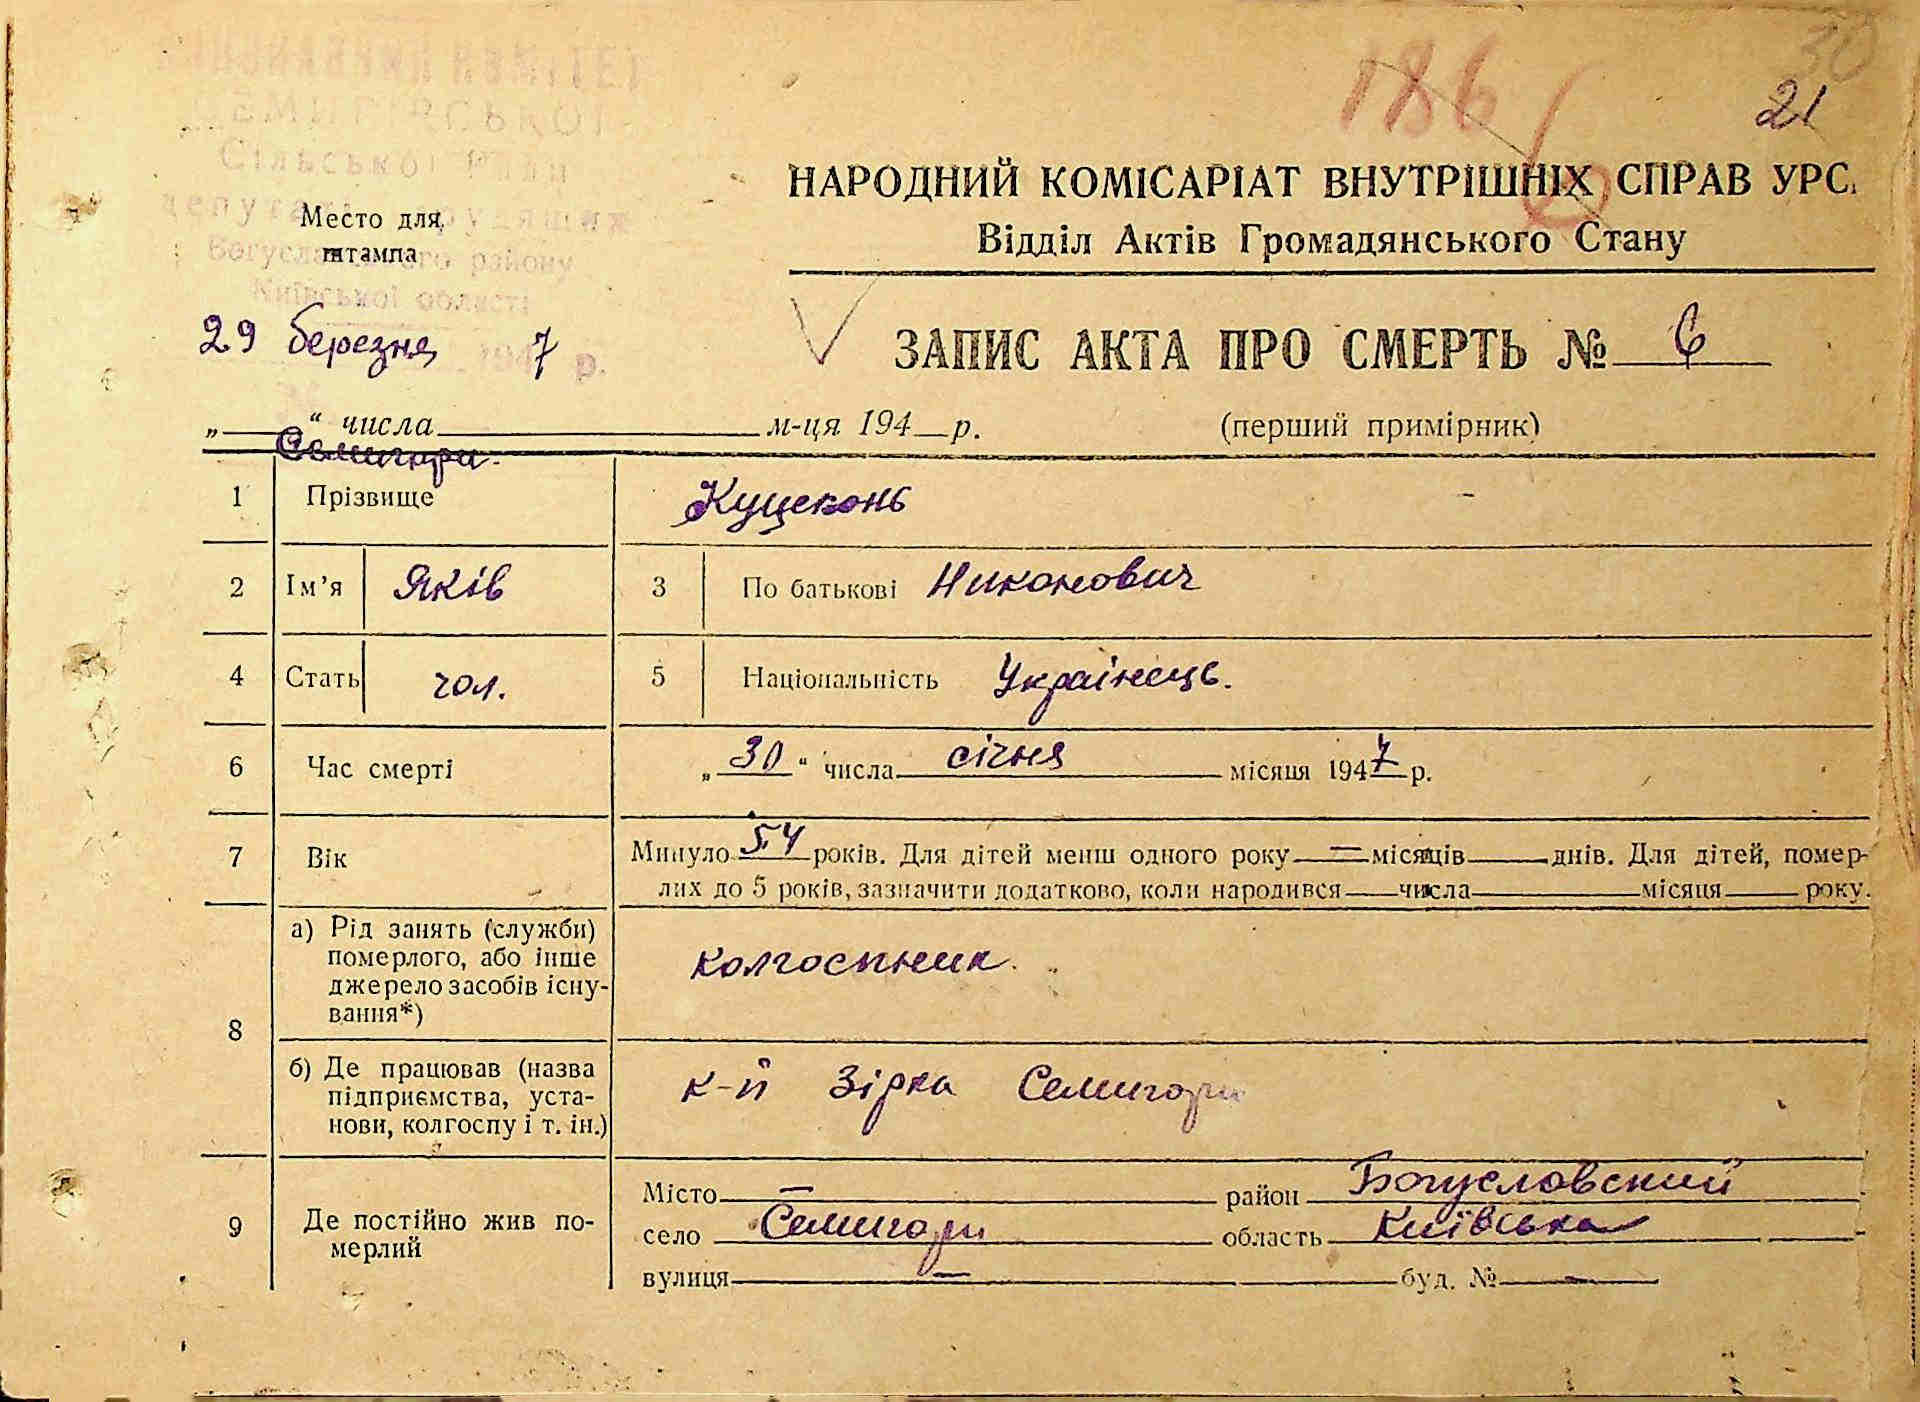 ВИКОНАВЧИЙ КОМІТЕТ
СЕМИГІРСЬКОЇ
Сільської Ради
депутатів трудящих
Богуславського району
Київської області
Место для
штампа
186
6
30
21
НАРОДНИЙ КОМІСАРІАТ ВНУТРІШНІХ СПРАВ УРС.
Відділ Актів Громадянського Стану
29 березня 1947 р.
ЗАПИС АКТА ПРО СМЕРТЬ № 6
„ “ числа м-ця 194 р. (перший примірник)
Семигори.
1 Прізвище Куцеконь
2 Ім’я Яків 3 По батькові Никонович
4 Стать чол. 5 Національність Українець.
6 Час смерті „30“ числа січня місяця 1947 р.
7 Вік Минуло 54 років. Для дітей менш одного року — місяців днів. Для дітей, помер-
лих до 5 років, зазначити додатково, коли народився числа місяця року.
8 а) Рід занять (служби)
померлого, або інше
джерело засобів існу-
вання*)
колгоспник.
б) Де працював (назва
підприємства, уста-
нови, колгоспу і т. ін.)
к-п Зірка Семигори
9 Де постійно жив по-
мерлий
Місто — район Богуславский
село Семигори область Київська
вулиця — буд. № —